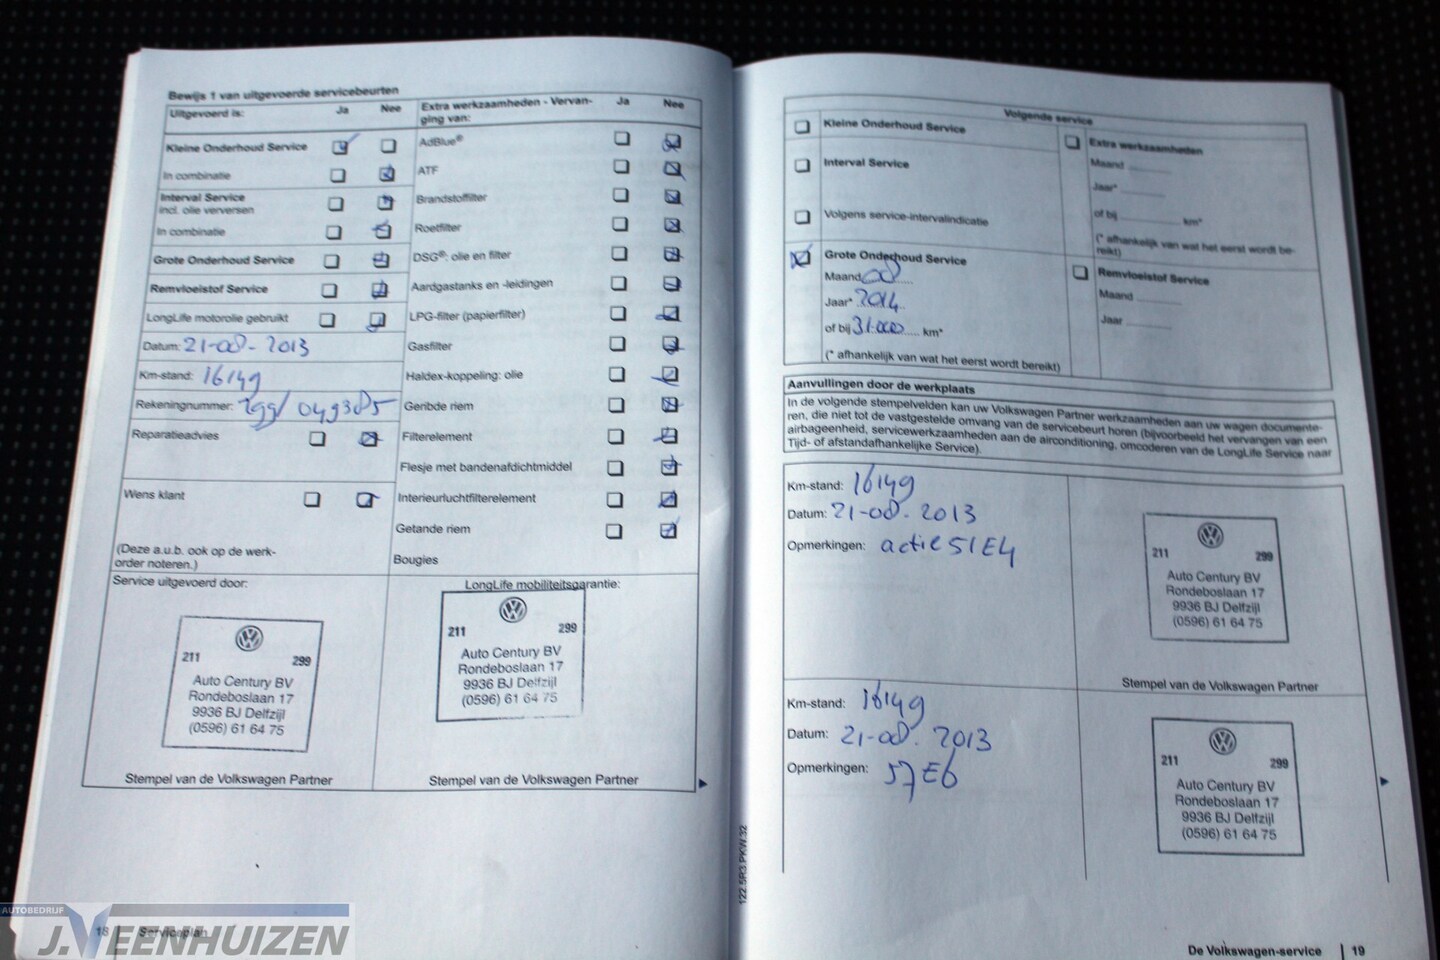 Bewijs 1 van uitgevoerde servicebeurten
Uitgevoerd is: Ja Nee
Kleine Onderhoud Service
In combinatie
Interval Service
incl. olie verversen
In combinatie
Grote Onderhoud Service
Remvloeistof Service
LongLife motorolie gebruikt
Datum: 21-08-2013
Km-stand: 16149
Rekeningnummer: 049385
Reparatieadvies
Wens klant
(Deze a.u.b. ook op de werk-
order noteren.)
Extra werkzaamheden - Vervan-
ging van: Ja Nee
AdBlue®
ATF
Brandstoffilter
Roetfilter
DSG®: olie en filter
Aardgastanks en -leidingen
LPG-filter (papierfilter)
Gasfilter
Haldex-koppeling: olie
Geribde riem
Filterelement
Flesje met bandenafdichtmiddel
Interieurluchtfilterelement
Getande riem
Bougies
Service uitgevoerd door:
211 299
Auto Century BV
Rondeboslaan 17
9936 BJ Delfzijl
(0596) 61 64 75
Stempel van de Volkswagen Partner
LongLife mobiliteitsgarantie:
211 299
Auto Century BV
Rondeboslaan 17
9936 BJ Delfzijl
(0596) 61 64 75
Stempel van de Volkswagen Partner
18 Serviceplan
AUTOBEDRIJF
J.VEENHUIZEN
122.5R3.PKW.32
Volgende service
Kleine Onderhoud Service
Interval Service
Volgens service-intervalindicatie
Grote Onderhoud Service
Maand 08
Jaar* 2014
of bij 31.000 km*
(* afhankelijk van wat het eerst wordt bereikt)
Extra werkzaamheden
Maand
Jaar*
of bij km*
(* afhankelijk van wat het eerst wordt be-
reikt)
Remvloeistof Service
Maand
Jaar
Aanvullingen door de werkplaats
In de volgende stempelvelden kan uw Volkswagen Partner werkzaamheden aan uw wagen documente-
ren, die niet tot de vastgestelde omvang van de servicebeurt horen (bijvoorbeeld het vervangen van een
airbageenheid, servicewerkzaamheden aan de airconditioning, omcoderen van de LongLife Service naar
Tijd- of afstandafhankelijke Service).
Km-stand: 16149
Datum: 21-08-2013
Opmerkingen: actie 51E4
211 299
Auto Century BV
Rondeboslaan 17
9936 BJ Delfzijl
(0596) 61 64 75
Stempel van de Volkswagen Partner
Km-stand: 16149
Datum: 21-08-2013
Opmerkingen: 57E6
211 299
Auto Century BV
Rondeboslaan 17
9936 BJ Delfzijl
(0596) 61 64 75
De Volkswagen-service 19